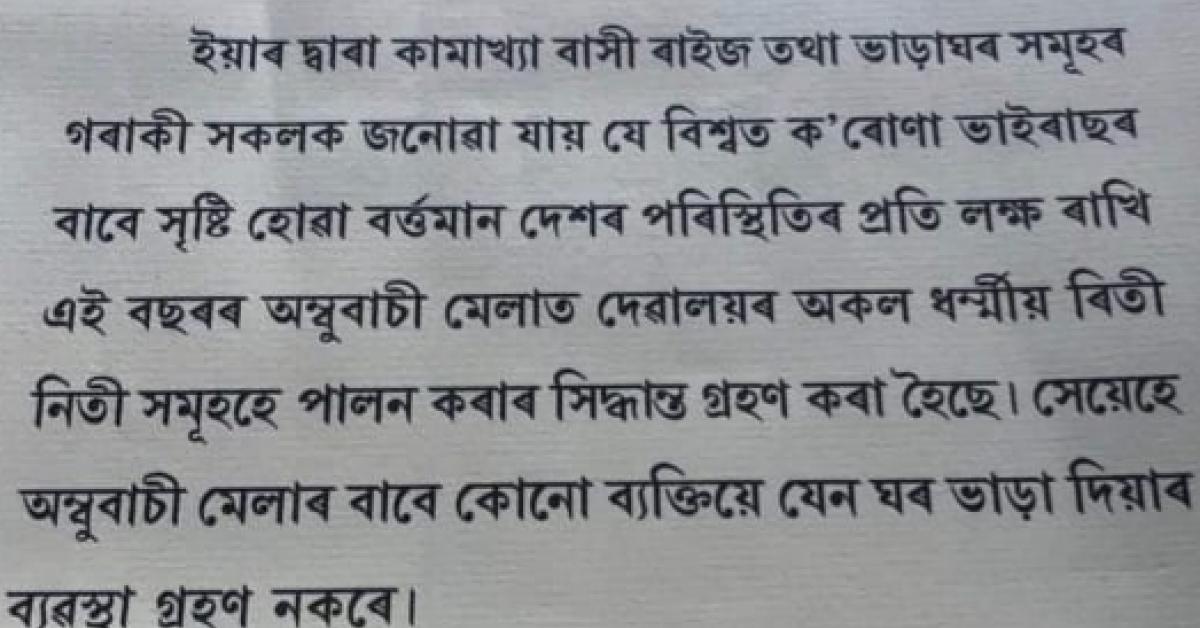 ইয়াৰ দ্বাৰা কামাখ্যা বাসী ৰাইজ তথা ভাড়াঘৰ সমূহৰ
গৰাকী সকলক জনোৱা যায় যে বিশ্বত ক'ৰোণা ভাইৰাছৰ
বাবে সৃষ্টি হোৱা বৰ্ত্তমান দেশৰ পৰিস্থিতিৰ প্ৰতি লক্ষ ৰাখি
এই বছৰৰ অম্বুবাচী মেলাত দেৱালয়ৰ অকল ধৰ্ম্মীয় ৰিতী
নিতী সমূহহে পালন কৰাৰ সিদ্ধান্ত গ্ৰহণ কৰা হৈছে। সেয়েহে
অম্বুবাচী মেলাৰ বাবে কোনো ব্যক্তিয়ে যেন ঘৰ ভাড়া দিয়াৰ
ব্যৱস্তা গ্ৰহণ নকৰে।